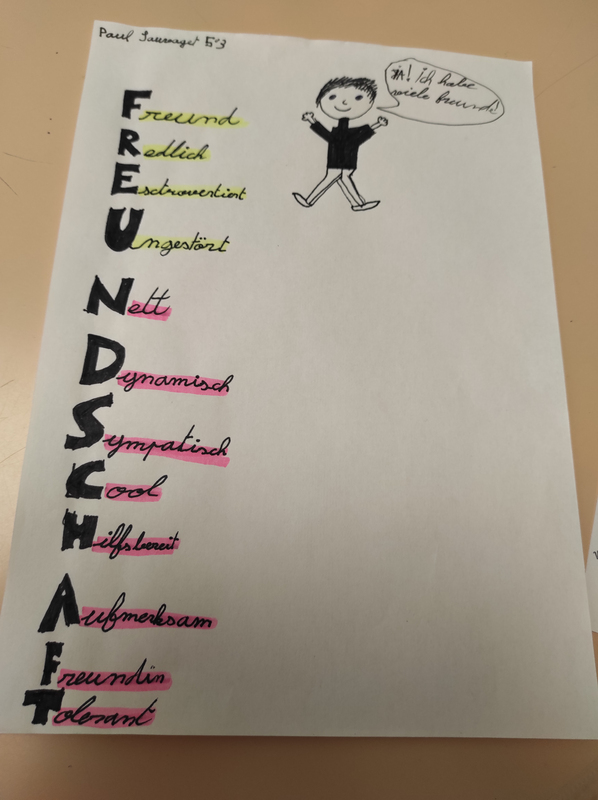 Paul Sauvaget 5°3
JA! Ich habe
viele freunde
Freund
Redlich
Esctrovertiert
Ungestört
Nett
Dynamisch
Sympatisch
Cool
Hilfsbereit
Aufmerksam
Freundin
Tolerant